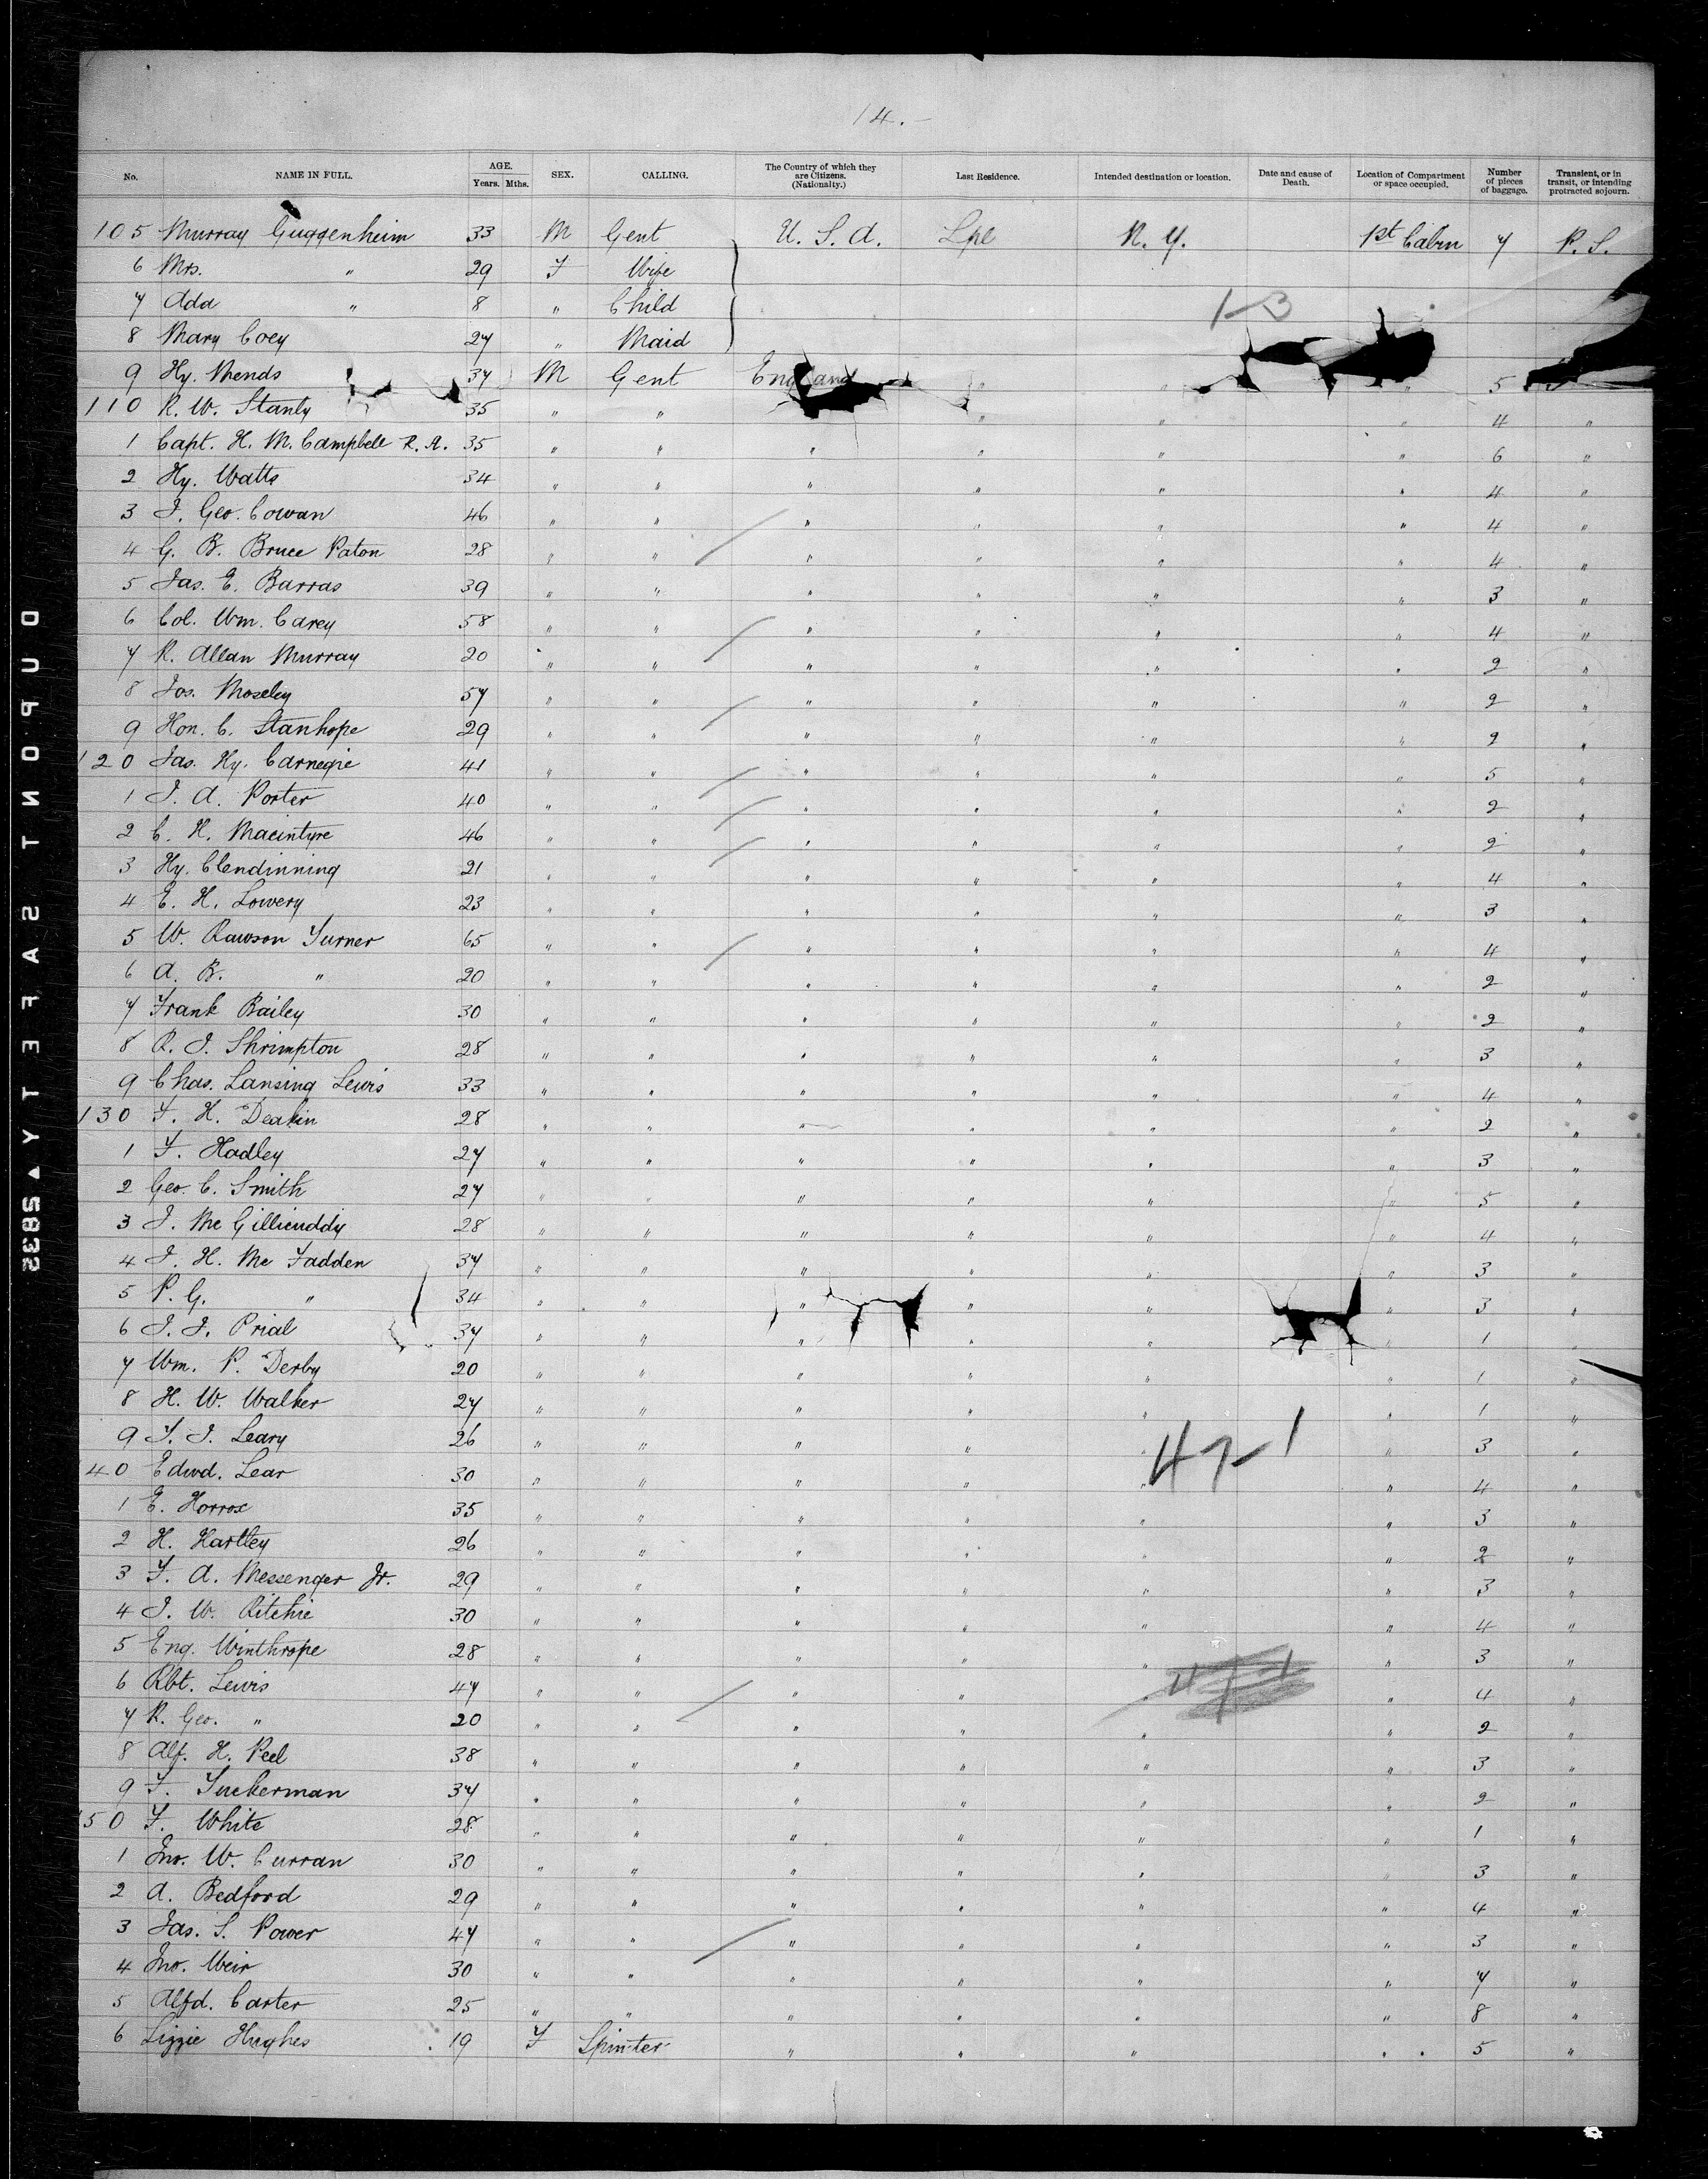 14.-
No. NAME IN FULL. AGE. Years. Mths. SEX. CALLING. The Country of which they are Citizens. (Nationalty.) Last Residence. Intended destination or location. Date and cause of Death. Location of Compartment or space occupied. Number of pieces of baggage. Transient, or in transit, or intending protracted sojourn.
105 Murray Guggenheim 33 M Gent U. S. A. Lpl N. Y. 1st Cabin 7 P. S.
6 Mrs. " 29 F Wife
7 Ada " 8 " Child 1-3
8 Mary Coey 27 " Maid
9 Hy. Mends 37 M Gent England " " " 5
110 R. W. Stanly 35 " " " " " 4 "
1 Capt. H. M. Campbell R. A. 35 " " " " " " 6 "
2 Hy. Watts 34 " " " " " " 4 "
3 J. Geo. Cowan 46 " " " " " " 4 "
4 G. B. Bruce Paton 28 " " " " " " 4 "
5 Jas. E. Barras 39 " " " " " " 3 "
6 Col. Wm. Carey 58 " " " " " " 4 "
7 R. Allan Murray 20 " " " " " " 2 "
8 Jos. Moseley 57 " " " " " " 2 "
9 Hon. C. Stanhope 29 " " " " " " 2 "
120 Jas. Hy. Carnegie 41 " " " " " " 5 "
1 J. A. Porter 40 " " " " " " 2 "
2 C. H. Macintyre 46 " " " " " " 2 "
3 Hy. Clendinning 21 " " " " " " 4 "
4 E. H. Lowery 23 " " " " " " 3 "
5 W. Rawson Turner 65 " " " " " " 4 "
6 A. B. " 20 " " " " " " 2 "
7 Frank Bailey 30 " " " " " " 2 "
8 R. J. Shrimpton 28 " " " " " " 3 "
9 Chas. Lansing Lewis 33 " " " " " " 4 "
130 F. H. Deakin 28 " " " " " " 2 "
1 F. Hadley 27 " " " " " " 3 "
2 Geo. C. Smith 27 " " " " " " 5 "
3 J. Mc Gillicuddy 28 " " " " " " 4 "
4 J. H. Mc Fadden 37 " " " " " " 3 "
5 P. G. " 34 " " " " " " 3 "
6 J. J. Prial 37 " " " " " " 1 "
7 Wm. P. Derby 20 " " " " " " 1 "
8 H. W. Walker 27 " " " " " " 1 "
9 T. J. Leary 26 " " " " " " 3 "
47-1
140 Edwd. Lear 30 " " " " " " 4 "
1 E. Horrox 35 " " " " " " 3 "
2 H. Hartley 26 " " " " " " 2 "
3 F. A. Messenger Jr. 29 " " " " " " 3 "
4 J. W. Ritchie 30 " " " " " " 4 "
5 Eng. Winthrope 28 " " " " " " 3 "
6 Rbt. Lewis 47 " " " " " " 4 "
7 R. Geo. " 20 " " " " " " 2 "
8 Alf. H. Peel 38 " " " " " " 3 "
9 F. Tuckerman 37 " " " " " " 2 "
150 F. White 28 " " " " " " 1 "
1 Jno. W. Curran 30 " " " " " " 3 "
2 A. Bedford 29 " " " " " " 4 "
3 Jas. S. Power 47 " " " " " " 3 "
4 Jno. Weir 30 " " " " " " 7 "
5 Alfd. Carter 25 " " " " " " 8 "
6 Lizzie Hughes 19 F Spinster " " " " 5 "
DUPONT SAFETY 5835